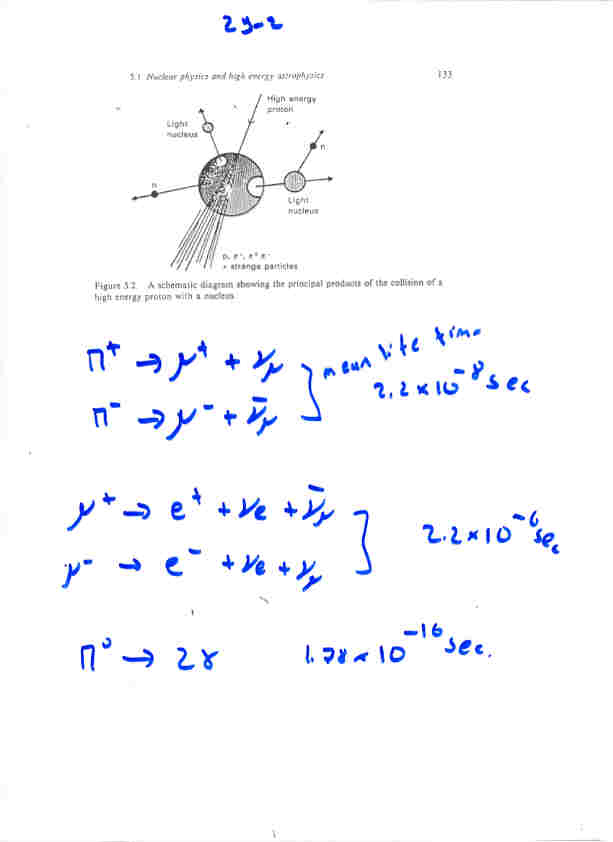 2y-2
5.1 Nuclear physics and high energy astrophysics 133
High energy
proton
Light
nucleus
n
n
Light
nucleus
+ strange particles
Figure 5.2. A schematic diagram showing the principal products of the collision of a
high energy proton with a nucleus
π⁺ → μ⁺ + νμ
mean life time
2.2 × 10⁻⁸ sec
π⁻ → μ⁻ + ν̄μ
μ⁺ → e⁺ + νe + ν̄μ
2.2 × 10⁻⁶ sec
μ⁻ → e⁻ + νe + νμ
π⁰ → 2γ 1.78 × 10⁻¹⁶ sec.
1